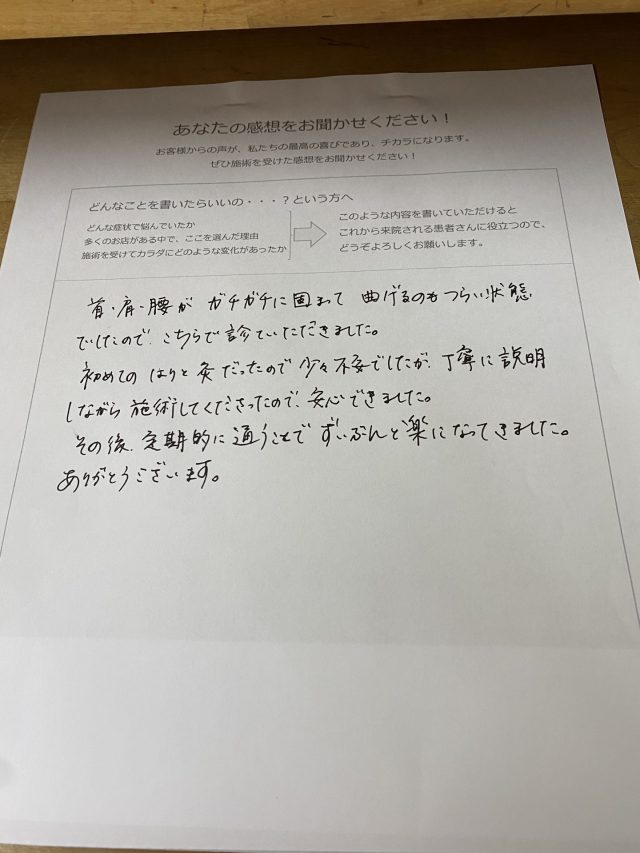 あなたの感想をお聞かせください！
お客様からの声が、私たちの最高の喜びであり、チカラになります。
ぜひ施術を受けた感想をお聞かせください！
どんなことを書いたらいいの・・・？という方へ
どんな症状で悩んでいたか
多くのお店がある中で、ここを選んだ理由
施術を受けてカラダにどのような変化があったか
このような内容を書いていただけると
これから来院される患者さんに役立つので、
どうぞよろしくお願いします。
首・肩・腰が ガチガチに固まって 曲げるのもつらい状態
でしたので、こちらで診ていただきました。
初めての はりと灸だったので 少々不安でしたが、丁寧に説明
しながら 施術してくださったので、安心できました。
その後、定期的に通うことで ずいぶんと楽になってきました。
ありがとうございます。